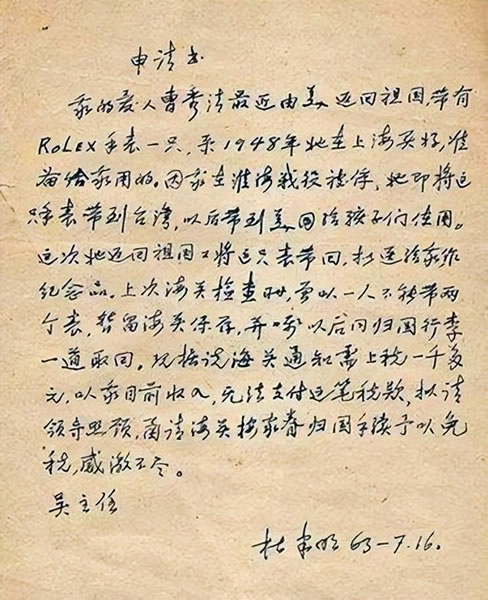 申请书
我的爱人曹秀清最近由美返回祖国,带有
ROLEX手表一只,系1948年她在上海买好,准
备给我用的。因我在淮海战役被俘,她即将这
只手表带到台湾,以后带到美国给孩子们使用。
这次她返回祖国又将这只表带回,拟送给我作
纪念品。上次海关检查时,曾以一人不能带两
个表,暂留海关保存,并嘱以后同归国行李
一道取回。现据说海关通知需上税一千多
元,以我目前收入,无法支付这笔税款,拟请
领导照顾,函请海关按家眷归国手续予以免
税,感激不尽。
吴主任
杜聿明 63-7.16.